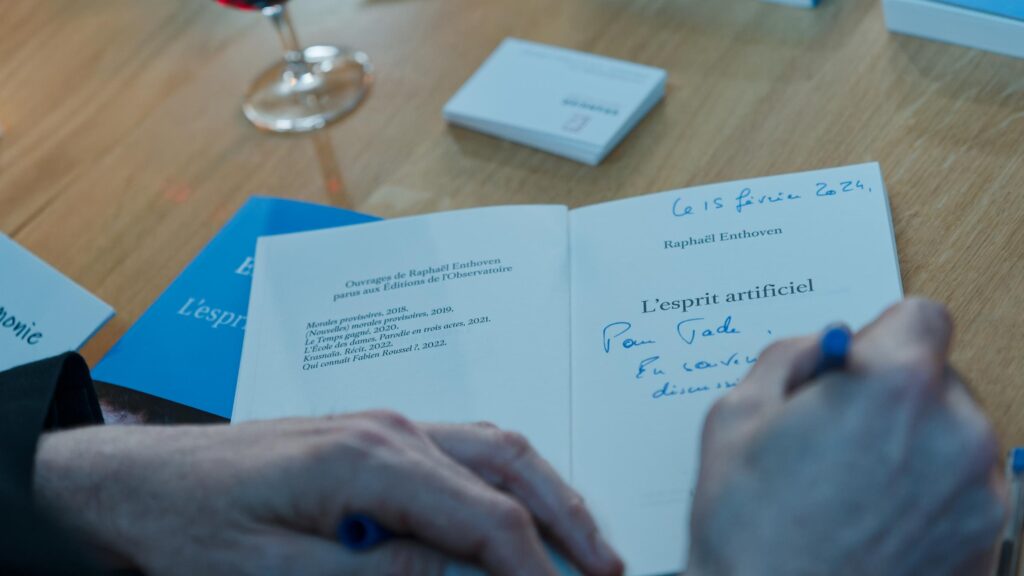 Ouvrages de Raphaël Enthoven
parus aux Éditions de l'Observatoire
Morales provisoires, 2018.
(Nouvelles) morales provisoires, 2019.
Le Temps gagné, 2020.
L'École des dames. Parodie en trois actes, 2021.
Krasnaïa. Récit, 2022.
Qui connaît Fabien Roussel ?, 2022.
Le 15 février 2024,
Raphaël Enthoven
L'esprit artificiel
Pour Jade,
En
L'espri
monie